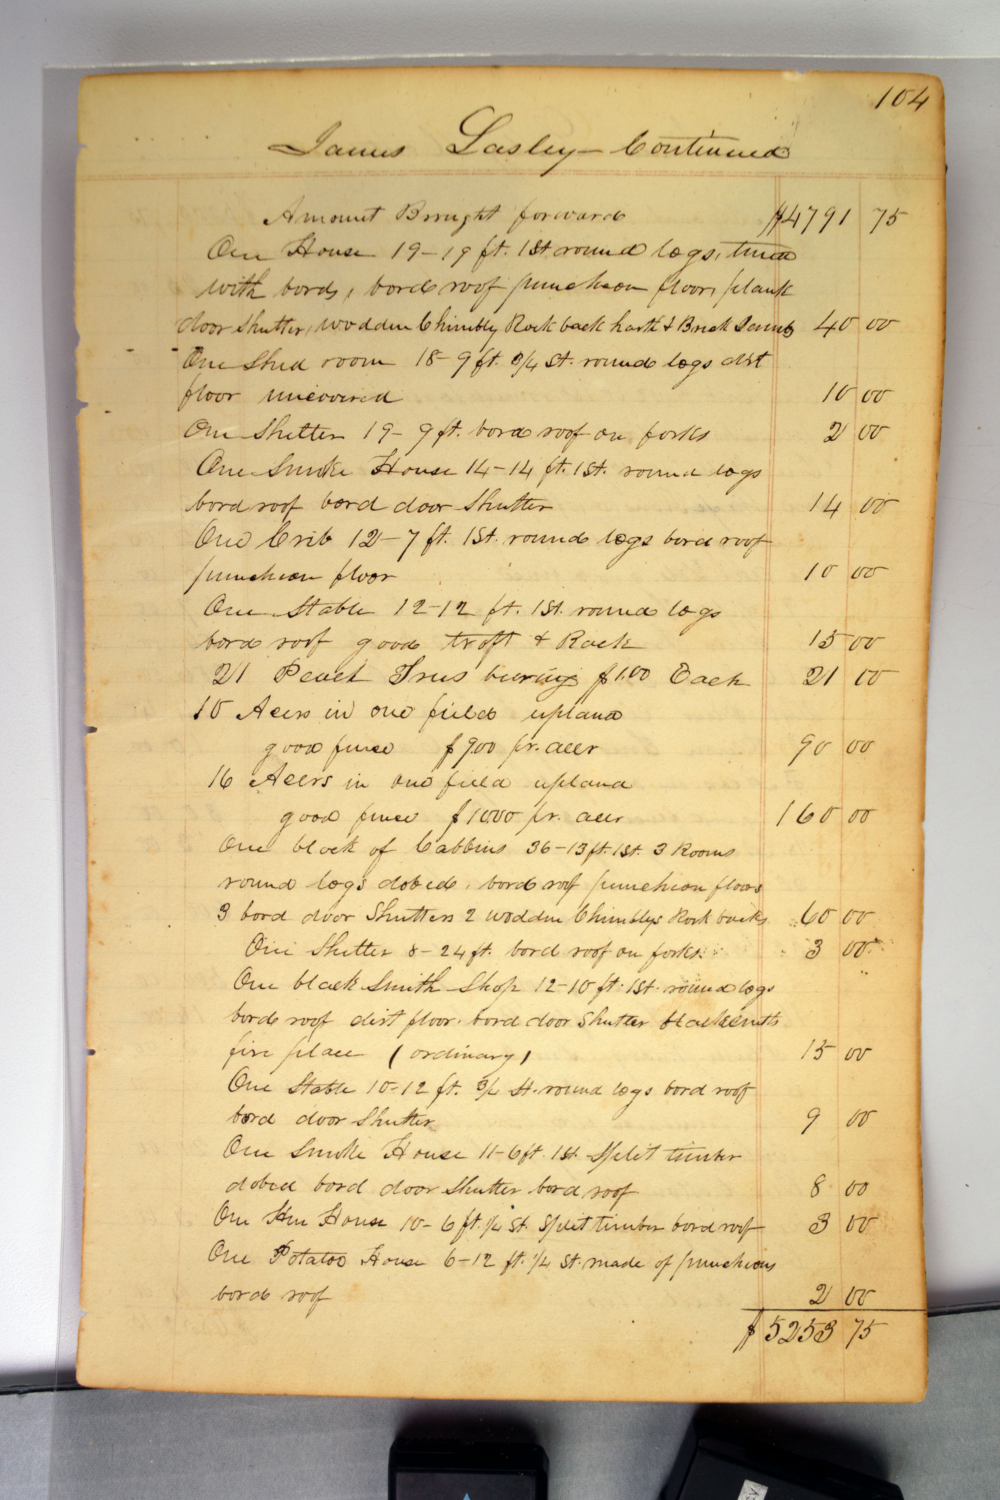 104
James Lasley – Continued
Amount Brought forward $4791 75
One House 19–19 ft. 1 St. round logs, lined
with bords, bord roof puncheon floor, plank
door shutter, wodden Chimbly Rock back harth & Brick Jambs 40 00
One Shed room 18–9 ft. 3/4 St. round logs dirt
floor uncovered 10 00
One Shelter 19–9 ft. bord roof on forks 2 00
One Smoke House 14–14 ft. 1 St. round logs
bord roof bord door Shutter 14 00
One Crib 12–7 ft. 1 St. round logs bord roof
puncheon floor 10 00
One Stable 12–12 ft. 1 St. round logs
bord roof good troft & Rack 15 00
21 Peach Trees bearing $1.00 Each 21 00
10 Acers in one field upland
good fence $9.00 pr. acer 90 00
16 Acers in one field upland
good fence $10.00 pr. acer 160 00
One block of Cabbins 36–13 ft. 1 St. 3 Rooms
round logs dobed, bord roof puncheon floors
3 bord door Shutters 2 wodden Chimblys Rock backs 60 00
One Shelter 8–24 ft. bord roof on forks. 3 00
One black Smith Shop 12–10 ft. 1 St. round logs
bord roof dirt floor. bord door Shutter blacksmith
fire place (ordinary) 15 00
One Stable 10–12 ft. 3/4 St. round logs bord roof
bord door Shutter 9 00
One Smoke House 11–6 ft. 1 St. Split timber
dobed bord door Shutter bord roof 8 00
One Hen House 10–6 ft. 1/4 St. Split timber bord roof 3 00
One Potatoo House 6–12 ft. 1/4 St. made of puncheons
bord roof 2 00
$5253 75